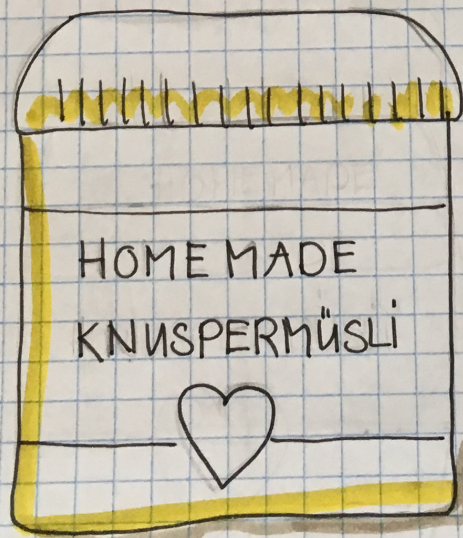 HOME MADE
KNUSPERMÜSLi